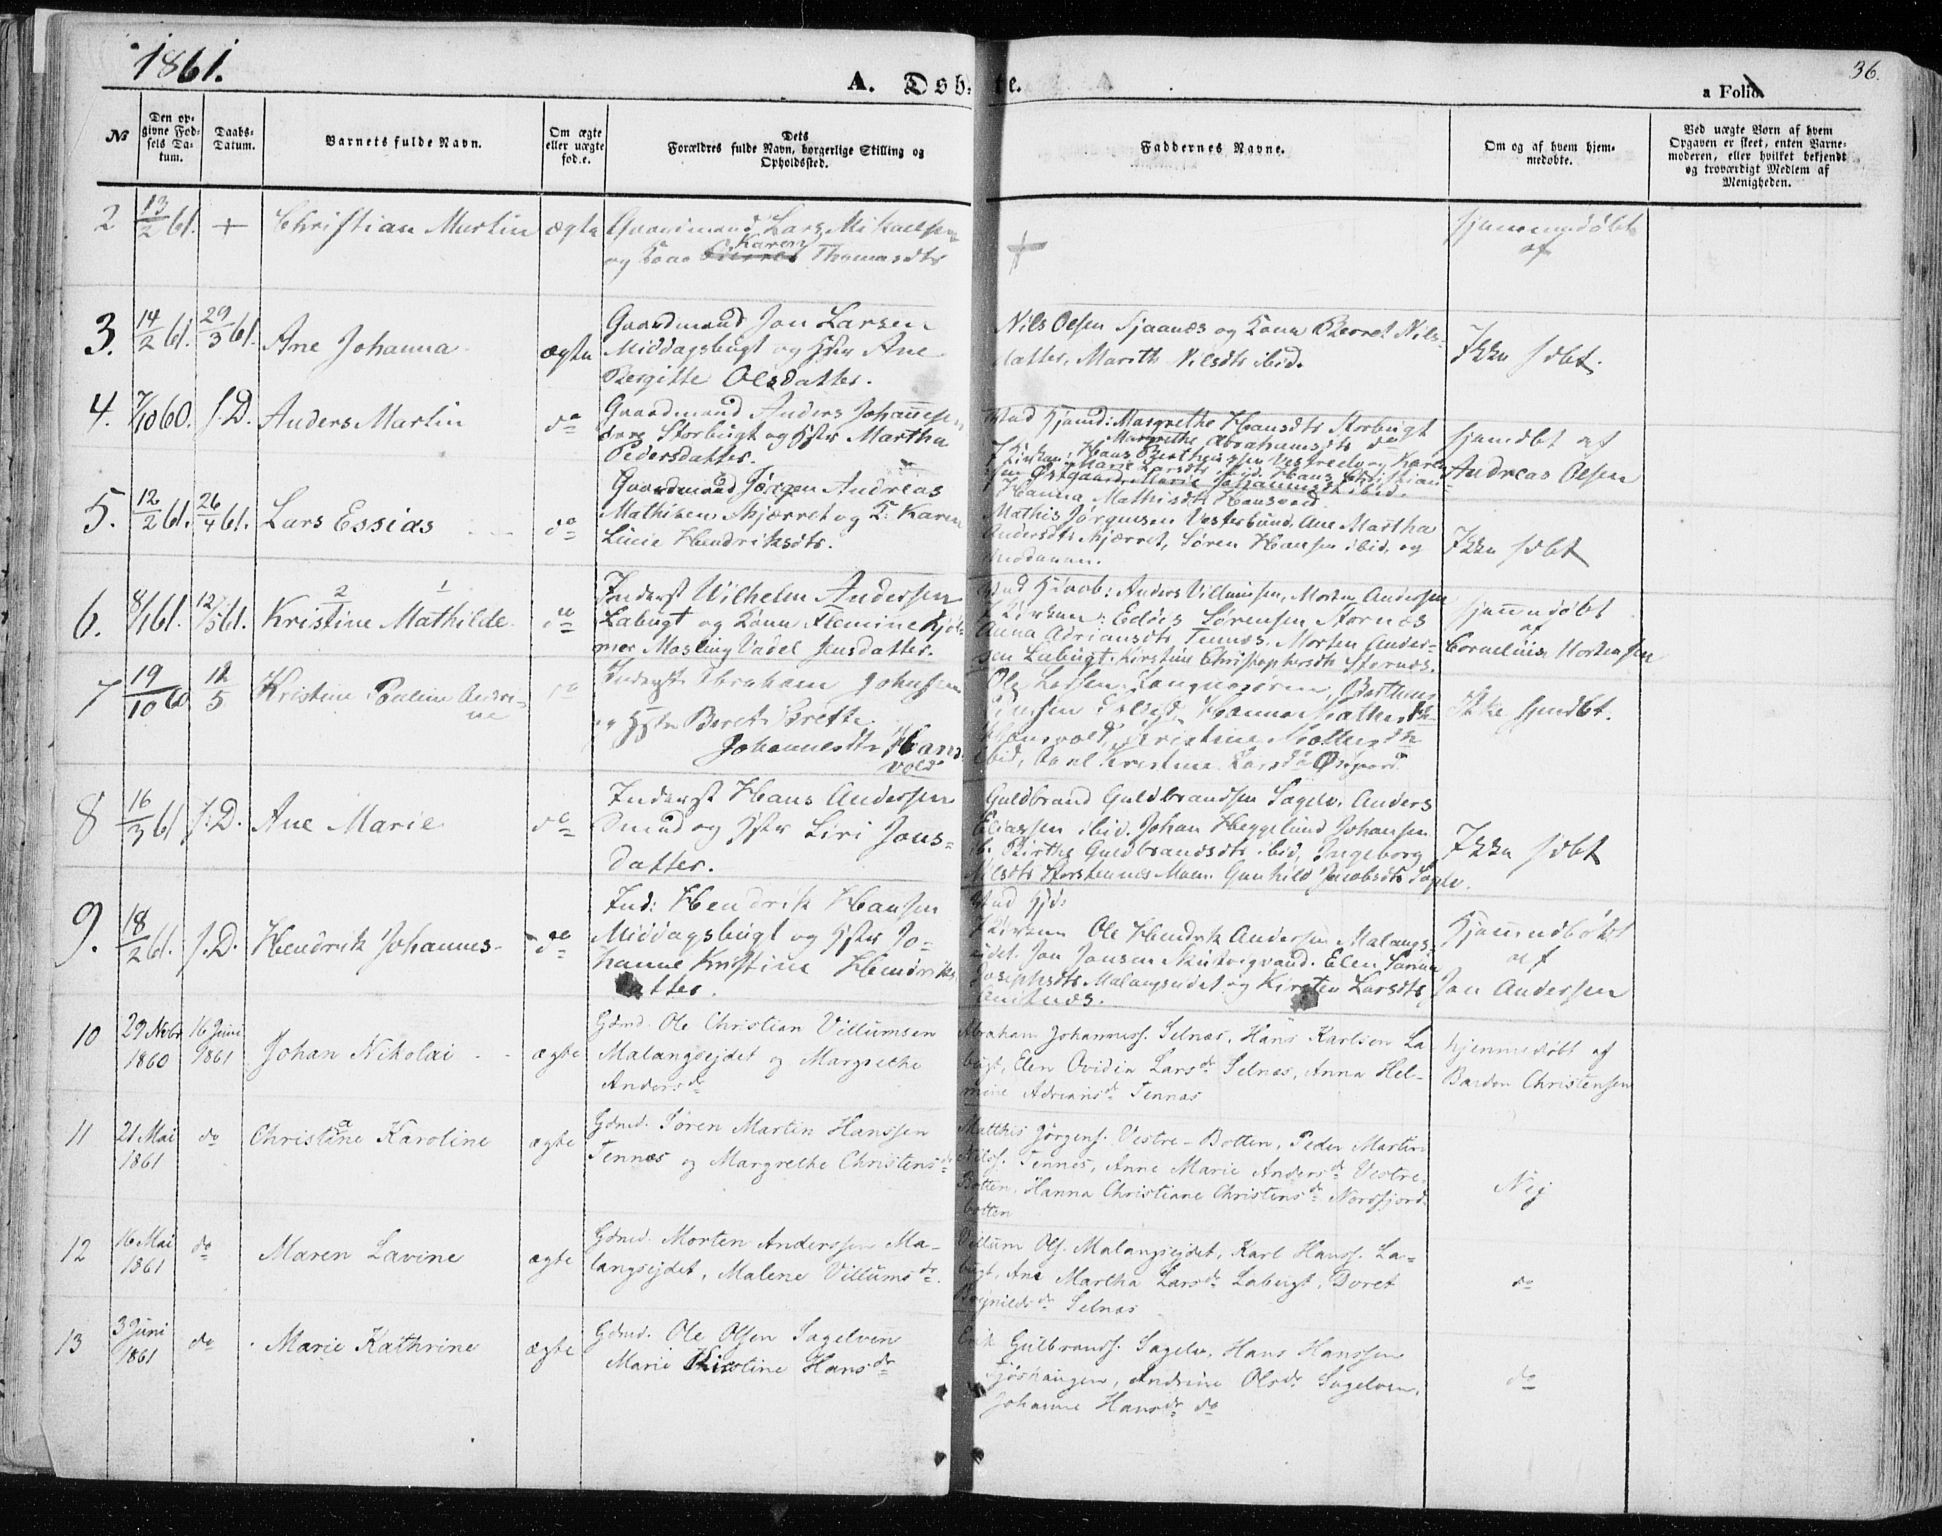 1861.
A. Døbte.
a Folio
36.
№
Den opgivne Fødsels Datum.
Daabs-Datum.
Barnets fulde Navn.
Om ægte eller uægte fød.e.
Dets Forældres fulde Navn, borgerlige Stilling og Opholdssted.
Faddernes Navne.
Om og af hvem hjemmedøbte.
Ved uægte Børn af hvem Opgaven er skeet, enten Barnemoderen, eller hvilket bekjendt og troværdigt Medlem af Menigheden.
2 13/2 61. + Christian Martin ægte Gaardmand Lars Mikaelsen
og Kone Karen Thomasdtr
+
Hjemmedøbt
af
3. 14/2 61. 29/3 61. Ane Johanna ægte
Gaardmand Jon Larsen
Middagsbugt og Hstr Ane
Bergitte Olsdatter.
Nils Olsen Kjaanæs og Kone Berret Nils-
datter, Marith Nilsdtr ibid.
Ikke hdbt.
4. 7/10 60. s.D. Anders Martin do
Gaardmand Anders Johannesen
Storbugt og Hstr Martha
Pedersdatter.
Ved Hjemd: Margrethe Hansdtr Storbugt
Margrethe Abrahamsdtr do
Hanna Mathisdtr Hansvold
Hjemdbt af
Andreas Olsen
5. 12/2 61. 26/4 61. Lars Essias do
Gaardmand Jørgen Andreas
Mathisen Skjærret og K. Karen
Linie Hendriksdtr.
Mathis Jørgensen Vesterbund, Ane Martha
Andersdtr Skjærret, Søren Hansen ibid, og
Moderen.
Ikke hdbt
6. 8/1 61. 12/5 61. Kristine Mathilde do
2 1
Inderst Wilhelm Andersen
Labugt og Kone Flemine Hjel-
mer Masling Vadel Jensdatter.
Ved Hjdåb: Anders Villumsen, Morten Andersen
I Kirken: Edørs Sørensen Stornæs
Anna Adriansdtr Tennæs. Morten Ander-
sen Labugt. Kirstine Christophersdtr Stornæs.
Hjemmedøbt
af
Cornelius Mortensen
7 19/10 60 12/5 Kristine Paline Andri-
ne do
Inderst Abraham Johnsen
og Hstr Beret Grethe
Johannesdtr Hans
vold
Ole Larsen
Hanna Mathisdtr
Hansvold, Kristine
ibid,
Ikke hjmdbt.
8 16/3 61 s.D. Ane Marie do
Inderst Hans Andersen
og Hstr Siri Jons-
datter.
Guldbrand Guldbrandsen Sagelv. Anders
Eliassen ibid. Johan Heggelund Johansen
ib. Birthe Guldbrandsdtr ibid, Ingeborg
Nilsdtr Storstennes Gunhild Jacobsdtr Sagelv.
Ikke hdbt
9. 18/2 61. s.D. Hendrik Johannes do
Ind: Hendrik Hansen
Middagsbugt og Hstr Jo-
hanne Kristine Hendriks
datter.
Ved Hjd:
I Kirken Ole Hendrik Andersen Malangs-
eidet. Jon Jonsen Skutvigvand. Elen
Josephsdtr Malangseidet og Kirsten Larsdtr
Hjemmdbøbt
af
Jon Andersen
10 29 Novbr 1860 16 Juni 1861 Johan Nikolai ægte
Gdmd. Ole Christian Villumsen
Malangsejdet og Margrethe
Andersdr
Abraham Johanness. Selnæs, Hans Karlsen La
bugt, Elen Ovidia Larsdr Selnæs, Anna Hel-
mine Adriansdr Tennæs
hjemmedøbt af
Bardon Christensen
11 21 Mai 1861 do Christiane Karoline ægte
Gdmd. Søren Martin Hanssen
Tennæs og Margrethe Christensdr
Matthis Jørgens. Vestre-Botten, Peder Martin
Nilss. Tennes, Anne Marie Andersdr Vestre-
Botten, Hanna Christiane Christensdr Nordfjord-
botten
Nej
12 16 Mai 1861 do Maren Lavine ægte
Gdmd. Morten Anderssen Ma-
langsejdet, Malene Villumsdr.
Villum Ols. Malangsejdet, Karl Hanss. La-
bugt, Ane Martha Larsdr Labugt, Boret
Selnæs
do
13 3 Juni 1861 do Marie Kathrine ægte
Gdmd. Ole Olsen Sagelven
Marie Kirstine Hansdr
Erik Gulbrands. Sagelv, Hans Hanssen
Andrine Olsdr Sagelven,
Johanne Hansdr do
do